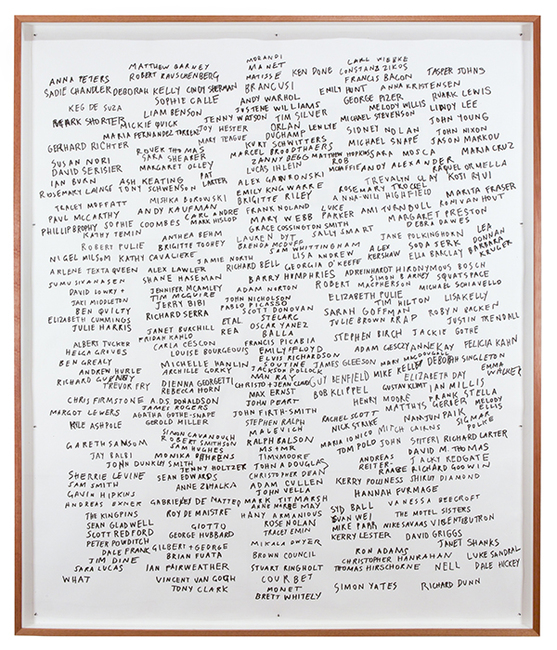 MORANDI
MATTHEW BARNEY MANET CARL WIEBKE
ANNA PETERS ROBERT RAUSCHENBERG MATISSE KEN DONE CONSTANZ ZIKOS JASPER JOHNS
SADIE CHANDLER DEBORAH KELLY CINDY SHERMAN BRANCUSI EMILY HUNT FRANCIS BACON ANNA KRISTENSEN
SOPHIE CALLE ANDY WARHOL GEORGE PIZER RUARK LEWIS
KEG DE SUZA LIAM BENSON JUSTENE WILLIAMS MELODY WILLIS LINDY LEE
MARK SHORTER MICKIE QUICK JENNY WATSON TIM SILVER MICHAEL STEVENSON JOHN YOUNG
MARIA FERNANDEZ JOY HESTER ORLAN LEN LYE SIDNEY NOLAN JOHN NIXON
GERHARD RICHTER MARY TEAGUE DUCHAMP MICHAEL SNAPE JASON MARKOU
SUSAN NORI ROVER THOMAS KURT SCHWITTERS MARIA CRUZ
DAVID SERISIER SARA SHEARER MARCEL BROODTHAERS SARA MOSLA
IAN BURN MARGARET OLLEY ZANNY BEGG MATTHEW HOPKINS ROB ANDY ALEXANDER RAQUEL ORMELLA
ROSEMARY LAING ASH KEATING PAT LUCAS IHLEIN TREVALYN CLAY KOSI MUI
TONY SCHWENSON LARTER ALEX GAWRONSKI ROSEMARY TROCKEL
TRACEY MOFFATT MISHKA BOROWSKI EMILY KNGWARRE ANNA-WILI HIGHFIELD MARITA FRASER
PAUL MCCARTHY ANDY KAUFMAN BRIGITTE RILEY AMI TURNBULL RONIVAN HOUT
PHILLIP BROPHY SOPHIE COOMBES CARL ANDRE FRANK NOLAND LUKE MARGARET PRESTON
KATHY TEMIN MARK HISLOP MARY WEBB PARKER DEBRA DAWES
ANTHEA BEHM GRACE COSSINGTON SMITH
ROBERT PULIE BRIGITTE TOOHEY LAUREN DYT SALLY SMART JANE POLKINGHORN LEA
NIGEL MILSOM KATHY CAVALIERE BRENDA MCDUFF SAM WHITTINGHAM ALEX SODA SERK DUNNAN
JAMIE NORTH LISA ANDREW KERSHAW ELLA BARCLAY BARBARA
ARLENE TEXTA QUEEN ALEX LAWLER RICHARD BELL GEORGIA O'KEEFFE KRUGER
SUMU SIVANASEN SHANE HASEMAN BARRY HUMPHRIES AD REINHARDT HIRONYMOUS BOSCH
DAVID LOWRY + JENNIFER MCAMLEY SIMON BUNG SQUATSPACE
JAKI MIDDLETON TIM MCGUIRE ADAM NORTON ROBERT MACPHERSON MICHAEL SCHIAVELLO
BEN QUILTY JERRY BIBI JOHN NICHOLSON ELIZABETH PULIE
ELIZABETH CUMMINGS RICHARD SERRA PABLO PICASSO TIM HILTON LISA KELLY
JULIE HARRIS SCOTT DONOVAN SARAH GOFFMAN ROBYN BACKEN
ETAL STELARC JULIE BROWN RRAP JUSTIN TRENDALL
JANET BURCHILL REA OSCAR YANEZ
ALBERT TUCKER FRIDAH KAHLO BALLA STEPHEN BIRCH JACKIE GOTHE
HELGA GROVES CARLA CESCON FRANCIS PICABIA
BEN GREALY LOUISE BOURGEOUIS EMILY FLOYD ADAM GECZY ANNE KAY FELICIA KAHN
ANDREW HURLE MICHELLE HANLIN ELVIS RICHARDSON JAMES GLEESON MARK MACDOUGALL
RICHARD GURNEY ARCHILLE GORKY SOUTINE MIKE KELLEY DEBORAH SINGLETON
TREVOR FRY DIENNA GEORGETTI JACKSON POLLOCK GUT BENFIELD ELIZABETH DAY EMMA
REBECCA HORN MAN RAY GUSTAV KLIMT IAN MILLIS
CHRIS FIRMSTONE A.D.S. DONALDSON CHRISTO + JEAN CLAUDE BOB KLIPPEL FRANK STELLA
MARGOT LEWERS JAMES ROGERS MAX ERNST HENRY MOORE MATTHYS GERBER MELODY
KYLE ASHPOLE AGATHA GOTHE-SNAPE JOHN PEART RACHEL SCOTT NAM JUN PAIK ELLIS
GEROLD MILLER JOHN FIRTH-SMITH NICK STRIKE SIGMAR
SIMON CAVANOUGH STEPHEN RALPH MARIA IONICO MITCH CAIRNS POLICE
GARETH SANSOM ROBERT SMITHSON MALEVICH
SAM HUGHES RALPH BALSON TOM POLO JOHN SPITERI RICHARD CARTER
JAY BALBI MONIKA BEHRENS MS+MR DAVID M. THOMAS
JOHN DUNKLEY SMITH TIM MOORE ANDREAS JACKY REDGATE
SHERRIE LEVINE JENNY HOLTZER JOHN A DOUGLAS REITER- RICHARD GOODWIN
SAM SMITH SEAN EDWARDS CHRISTOPHER DEAN RAABE
GAVIN HIPKINS ANNE ZAHALKA ADAM CULLEN KERRY POLINESS SHIRLEY DIAMOND
ANDREAS EXNER JOHN VELLA HANNAH FURMAGE
GABRIELLA DE MATTEO MARK TITMARSH SID BALL VANESSA BEECROFT
THE KINGPINS ROY DE MAISTRE ANNE MAREE MAY EUAN WEI THE MOTEL SISTERS
SEAN GLADWELL GIOTTO HANY ARMANIOUS MIKE PARR NIKE SAVAS VIBENTI BUTRON
SCOTT REDFORD GEORGE HUBBARD ROSE NOLAN KERRY LESTER DAVID GRIGGS
PETER POWDITCH TRACEY EMIN JANET SHANKS
DALE FRANK GILBERT + GEORGE MIKALA DWYER RON ADAMS
TIM DINE BRIAN FUATA BROWN COUNCIL CHRISTOPHER HANRAHAN LUKE SANDRAL
SARA LUCAS IAN FAIRWEATHER STUART RINGHOLT THOMAS HIRSCHORNE NELL DALE HICKEY
WHAT VINCENT VAN GOGH COURBET
TONY CLARK MONET SIMON YATES RICHARD DUNN
BRETT WHITELY